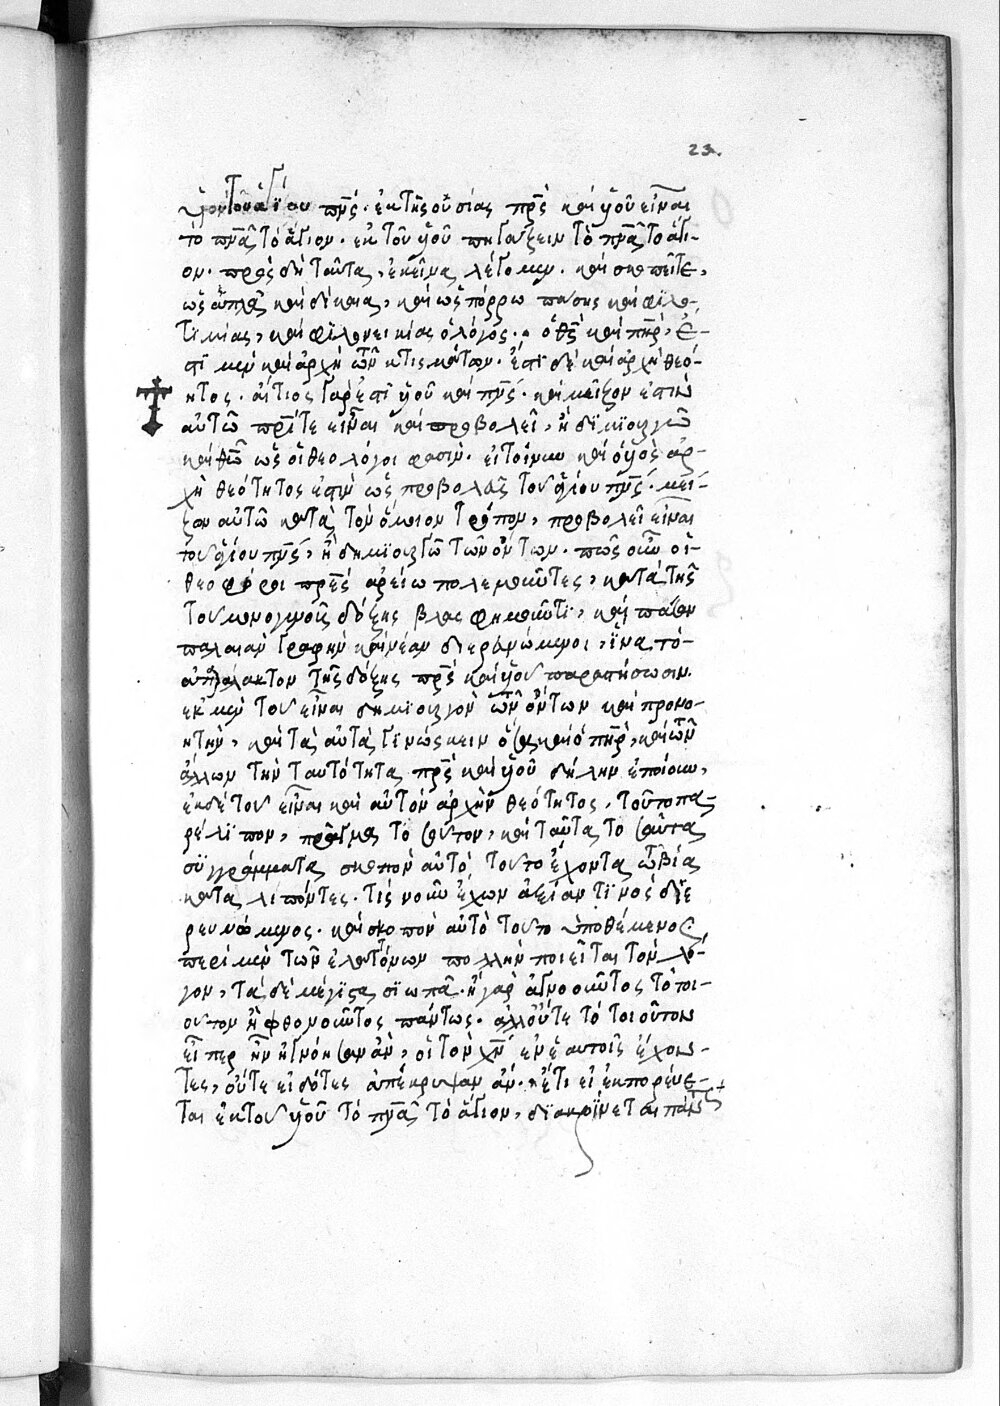 23.
τοῦ ἁγίου πνς· ἐκ τῆς οὐσίας πρς καὶ υἱοῦ εἶναι
τὸ πνα τὸ ἅγιον· ἐκ τοῦ υἱοῦ πηγάζειν τὸ πνα τὸ ἅγι-
ον· πρὸς δὴ ταῦτα, ἐκεῖνα λέγομεν· καὶ σκοπεῖτε,
ὡς ἁπλᾶ καὶ δίκαια, καὶ ὡς πόρρω πάσης καὶ φιλο-
τιμίας, καὶ φιλονεικίας ὁ λόγος· ὁ θς καὶ πηρ, ἔ-
στι μὲν καὶ ἀρχὴ τῶν κτισμάτων· ἔστι δὲ καὶ ἀρχὴ θεό-
τητος· αἴτιος γάρ ἐστι υἱοῦ καὶ πνς· καὶ μεῖζον ἐστὶν
αὐτῶ πρί τε εἶναι καὶ προβολεῖ, ἢ δημιουργῶ
καὶ θῶ ὡς οἱ θεολόγοι φασίν· εἰ τοίνυν καὶ ὁ υἱὸς ἀρ-
χὴ θεότητος ἐστὶν ὡς προβολεὺς τοῦ ἁγίου πνς· μεῖ-
ζον αὐτῶ κατὰ τὸν ὅμοιον τρόπον, προβολεῖ εἶναι
τοῦ ἁγίου πνς, ἢ δημιουργῶ τῶν ὄντων· πῶς οὖν οἱ
θεοφόροι πρες ἀρείω πολεμοῦντες, κατὰ τῆς
τοῦ μονογενοῦς δόξης βλασφημοῦντι, καὶ πᾶσαν
παλαιὰν γραφὴν καὶ νέαν διερευνώμενοι, ἵνα τὸ
ἀπαράλακτον τῆς δόξης πρς καὶ υἱοῦ παραστήσωσιν·
ἐκ μὲν τοῦ εἶναι δημιουργὸν τῶν ὄντων καὶ προνο-
ητὴν, καὶ τὰ αὐτὰ γινώσκειν ὁ υἱὸς καὶ ὁ πηρ, καὶ τῶν
ἄλλων τὴν ταυτότητα πρς καὶ υἱοῦ δήλην ἐποίουν,
ἐκ δὲ τοῦ εἶναι καὶ αὐτὸν ἀρχὴν θεότητος, τοῦτο πα-
ρέλιπον, πρᾶγμα τοσοῦτον, καὶ ταῦτα τοσαῦτα
συγγράμματα σκοπὸν αὐτὸ τοῦτο ἔχοντα τῶ βίω
καταλιπόντες· τίς νοῦν ἔχων ἀξίαν τινὸς διε-
ρευνώμενος· καὶ σκοπὸν αὐτὸ τοῦτο ὑποθέμενος
περὶ μὲν τῶν ἐλαττόνων πολλὴν ποιεῖται τὸν λό-
γον, τὰ δὲ μέγιστα σιωπᾶ· ἢ γὰρ ἀγνοοῦντος τὸ τοι-
οῦτον ἢ φθονοῦντος πάντως· ἀλλ' οὔτε τὸ τοιοῦτον
εἴπερ ἦν ἠγνόησαν ἂν, οἱ τὸν χν ἐν ἑαυτοῖς ἔχον-
τες, οὔτε εἰδότες ἀπέκρυψαν ἄν· ἔτι εἰ ἐκπορεύε-
ται ἐκ τοῦ υἱοῦ τὸ πνα τὸ ἅγιον, διακρίνεται πάντως